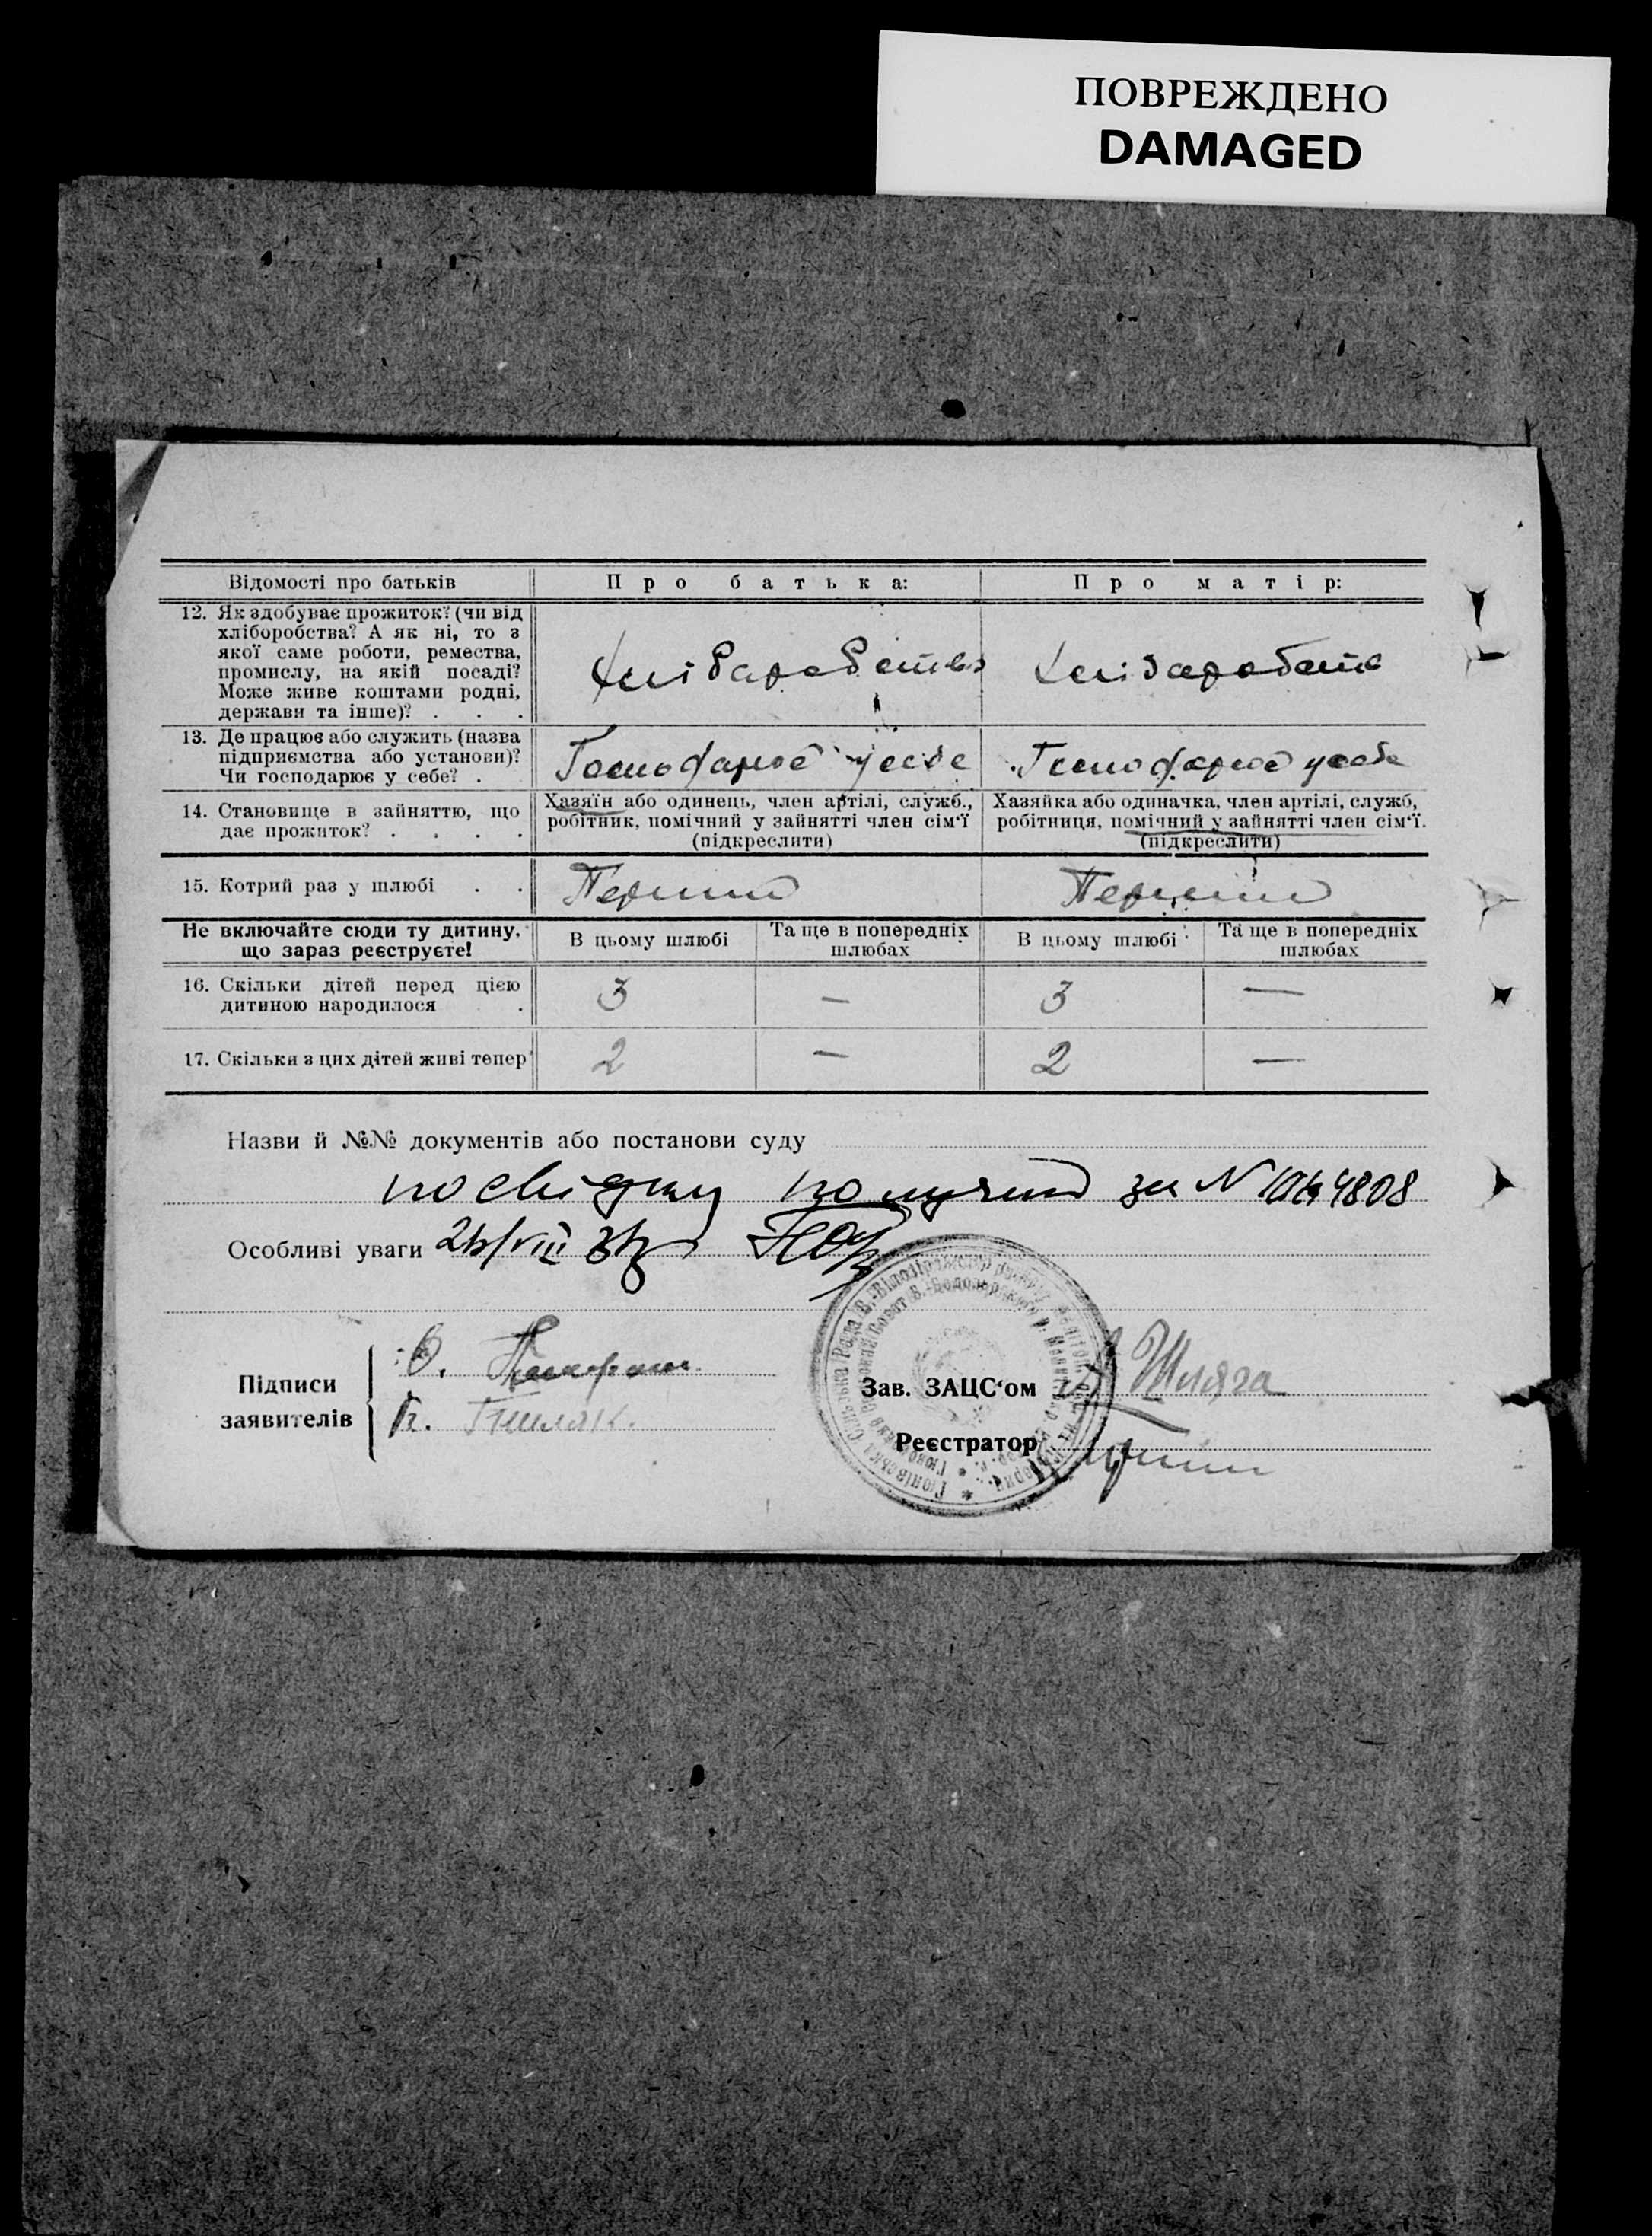 ПОВРЕЖДЕНО
DAMAGED
Відомості про батьків
Про батька:
Про матір:
12. Як здобуває прожиток? (чи від
хліборобства? А як ні, то з
якої саме роботи, ремества,
промислу, на якій посаді?
Може живе коштами родні,
держави та інше)? . . .
13. Де працює або служить (назва
підприємства або установи)?
Чи господарює у себе? .
Господарює у себе
Господарює у себе
14. Становище в зайняттю, що
дає прожиток? . . . .
Хазяїн або одинець, член артілі, служб.,
робітник, помічний у зайнятті член сім'ї
(підкреслити)
Хазяйка або одиначка, член артілі, служб,
робітниця, помічний у зайнятті член сім'ї.
(підкреслити)
15. Котрий раз у шлюбі . .
Перший
Перший
Не включайте сюди ту дитину,
що зараз реєструєте!
В цьому шлюбі
Та ще в попередніх
шлюбах
В цьому шлюбі
Та ще в попередніх
шлюбах
16. Скільки дітей перед цією
дитиною народилося .
3 — 3 —
17. Скільки з цих дітей живі тепер
2 — 2 —
Назви й №№ документів або постанови суду
за N
Особливі уваги
Підписи
заявителів
О.
Зав. ЗАЦС'ом Шляга
Реєстратор